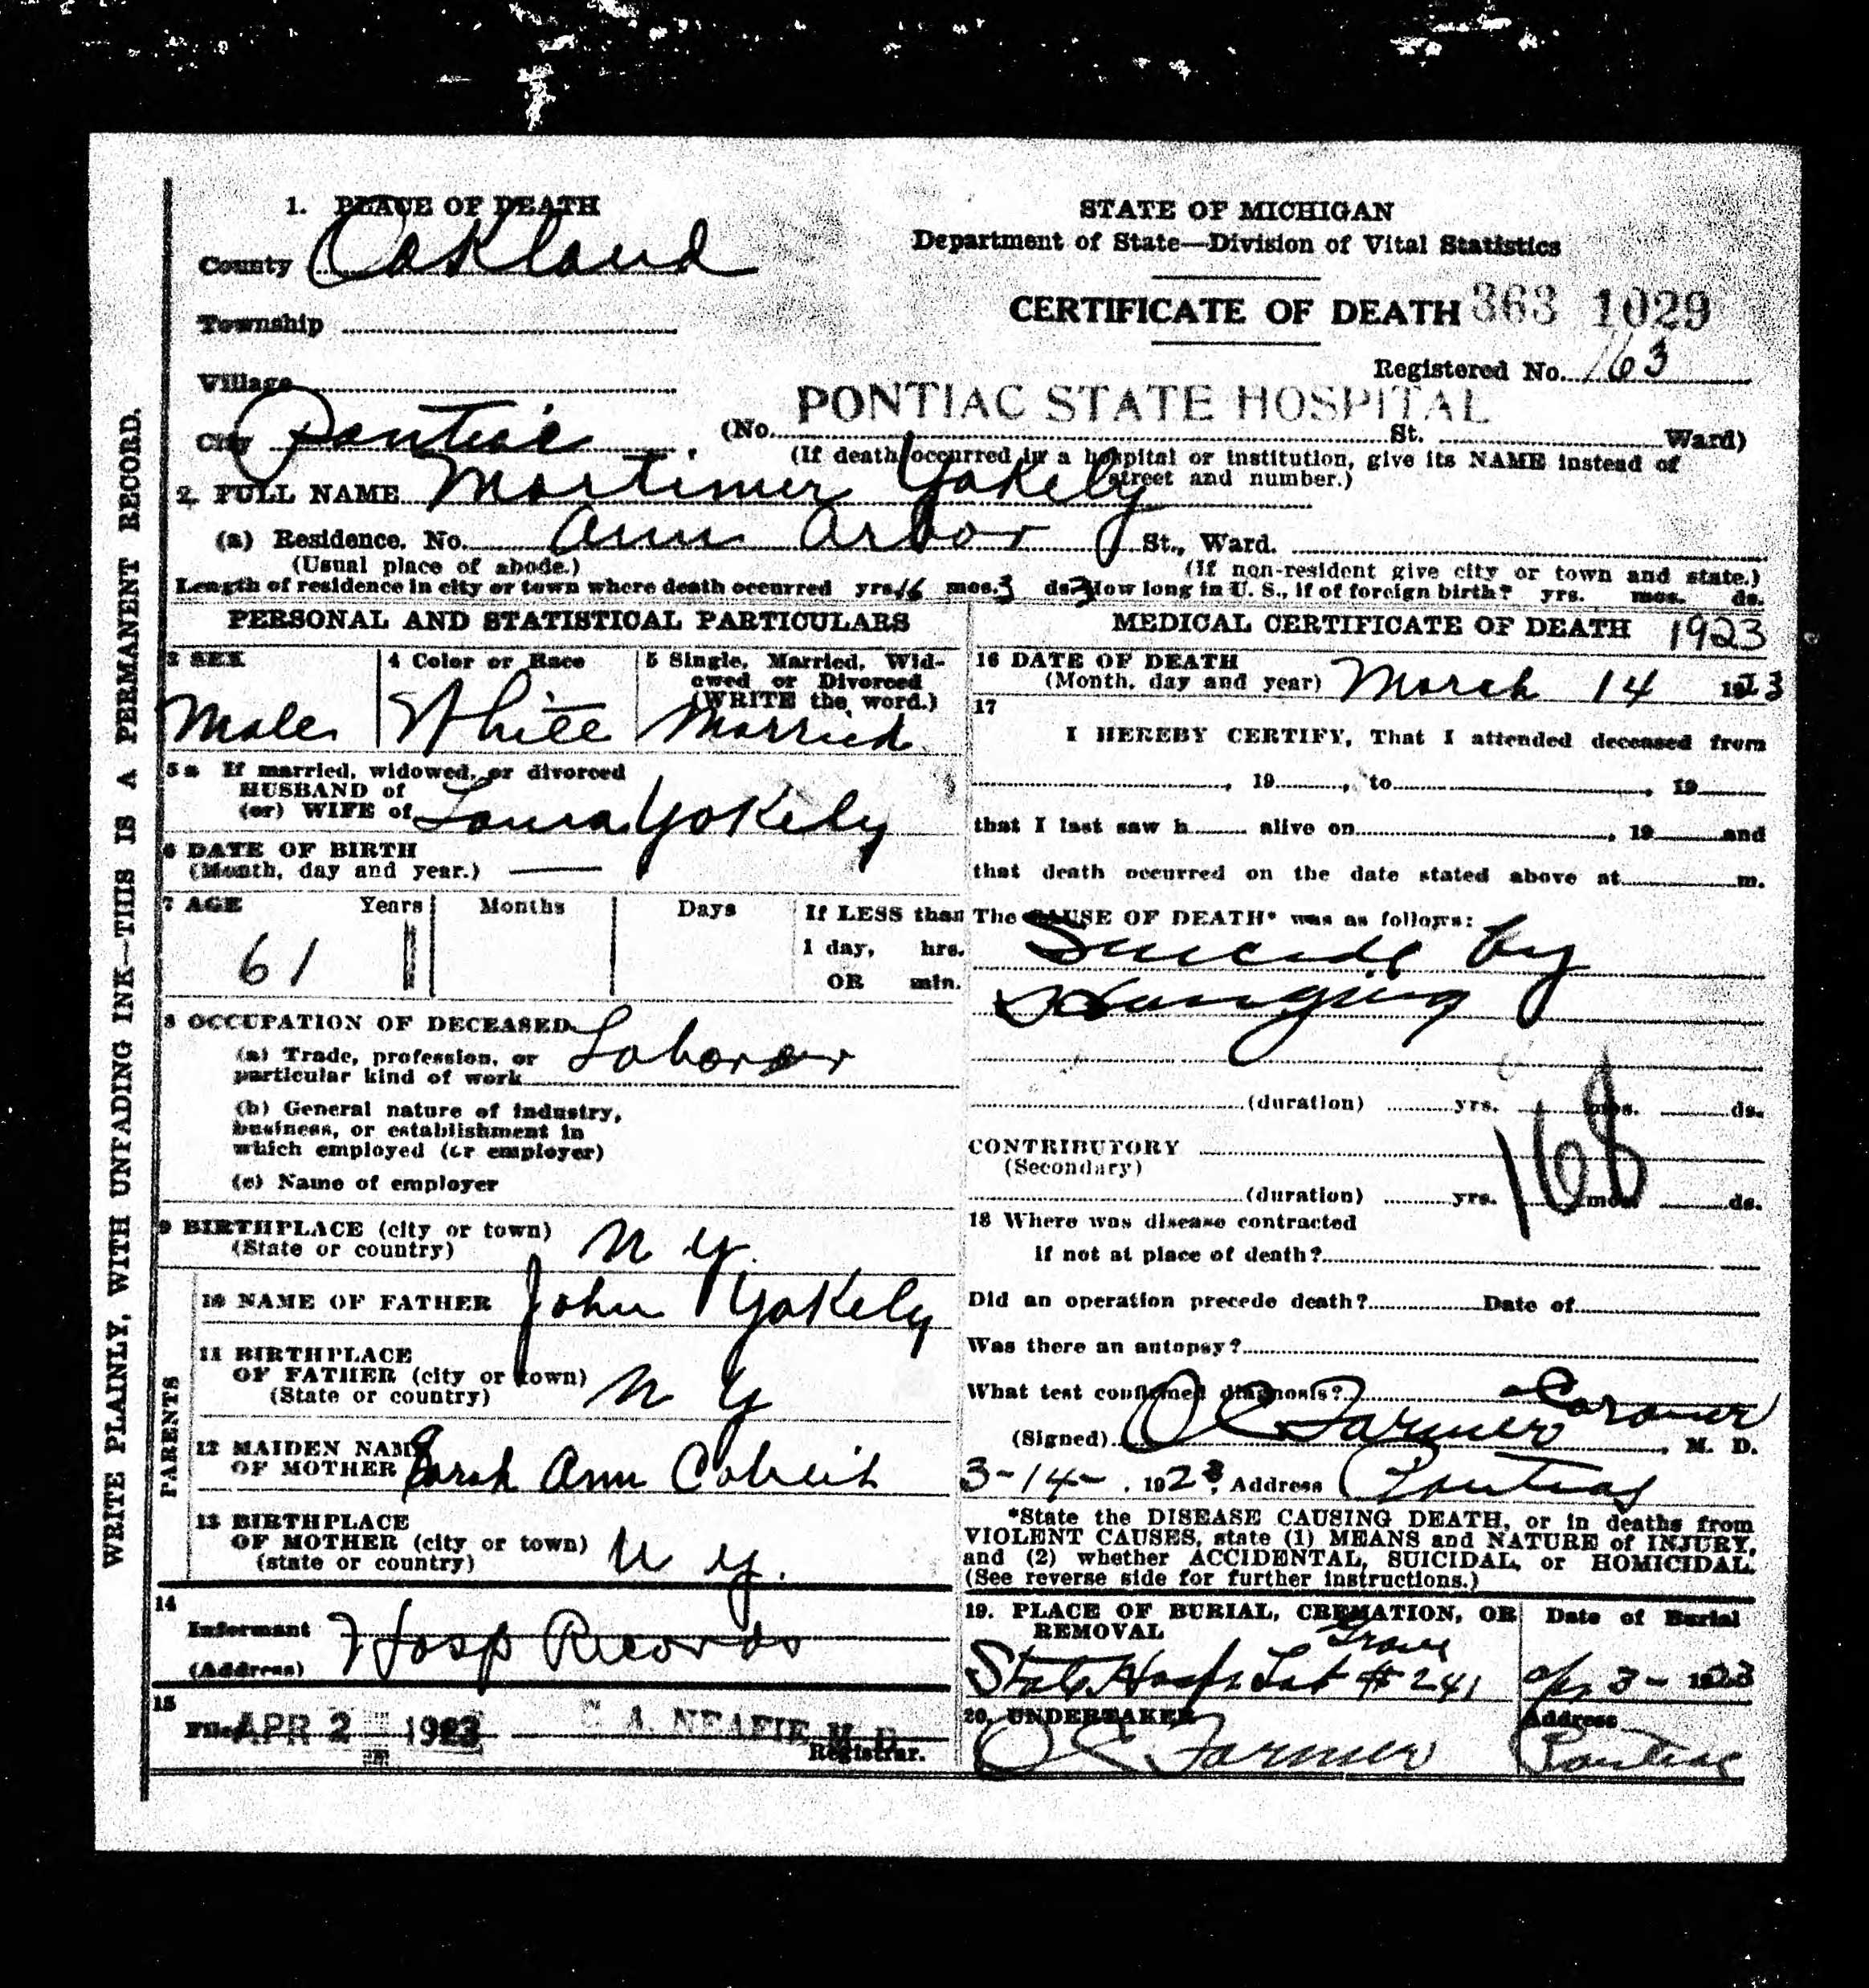 WRITE PLAINLY, WITH UNFADING INK—THIS IS A PERMANENT RECORD.
1. PLACE OF DEATH
County Oakland
Township
Village
City Pontiac
STATE OF MICHIGAN
Department of State—Division of Vital Statistics
CERTIFICATE OF DEATH 363 1029
Registered No. 163
PONTIAC STATE HOSPITAL
(No. St. Ward)
(If death occurred in a hospital or institution, give its NAME instead of
street and number.)
2. FULL NAME Mortimer Yokely
(a) Residence. No. Ann Arbor St., Ward.
(Usual place of abode.) (If non-resident give city or town and state.)
Length of residence in city or town where death occurred yrs. 16 mos. 3 ds. 3 How long in U. S., if of foreign birth? yrs. mos. ds.
PERSONAL AND STATISTICAL PARTICULARS
3 SEX
Male
4 Color or Race
White
5 Single, Married, Wid-
owed or Divorced
(WRITE the word.)
Married
5a If married, widowed, or divorced
HUSBAND of
(or) WIFE of Laura Yokely
6 DATE OF BIRTH
(Month, day and year.) —
7 AGE Years Months Days If LESS than
1 day, hrs.
61
OR min.
8 OCCUPATION OF DECEASED
(a) Trade, profession, or Laborer
particular kind of work
(b) General nature of industry,
business, or establishment in
which employed (or employer)
(c) Name of employer
9 BIRTHPLACE (city or town)
(State or country) N Y.
PARENTS
10 NAME OF FATHER John Yokely
11 BIRTHPLACE
OF FATHER (city or town)
(State or country) N Y
12 MAIDEN NAME
OF MOTHER Sarah Ann
13 BIRTHPLACE
OF MOTHER (city or town)
(state or country) N Y.
14
Informant Hosp Records
(Address)
15
Filed APR 2 1923 C. A. NEAFIE, M. D.
Registrar.
MEDICAL CERTIFICATE OF DEATH 1923
16 DATE OF DEATH
(Month, day and year) March 14 1923
17
I HEREBY CERTIFY, That I attended deceased from
, 19 , to , 19
that I last saw h alive on , 19 and
that death occurred on the date stated above at m.
The CAUSE OF DEATH* was as follows:
Suicide by
Hanging
(duration) yrs. mos. ds.
168
CONTRIBUTORY
(Secondary)
(duration) yrs. mos. ds.
18 Where was disease contracted
if not at place of death?
Did an operation precede death? Date of
Was there an autopsy?
What test confirmed diagnosis?
Coroner
(Signed) O C Farmer, M. D.
3-14-, 1923, Address Pontiac
*State the DISEASE CAUSING DEATH, or in deaths from
VIOLENT CAUSES, state (1) MEANS and NATURE of INJURY,
and (2) whether ACCIDENTAL, SUICIDAL, or HOMICIDAL.
(See reverse side for further instructions.)
19. PLACE OF BURIAL, CREMATION, OR
REMOVAL
Grave
State Hosp. Lot # 241
Date of Burial
Apr 3- 1923
20. UNDERTAKER
O C Farmer
Address
Pontiac